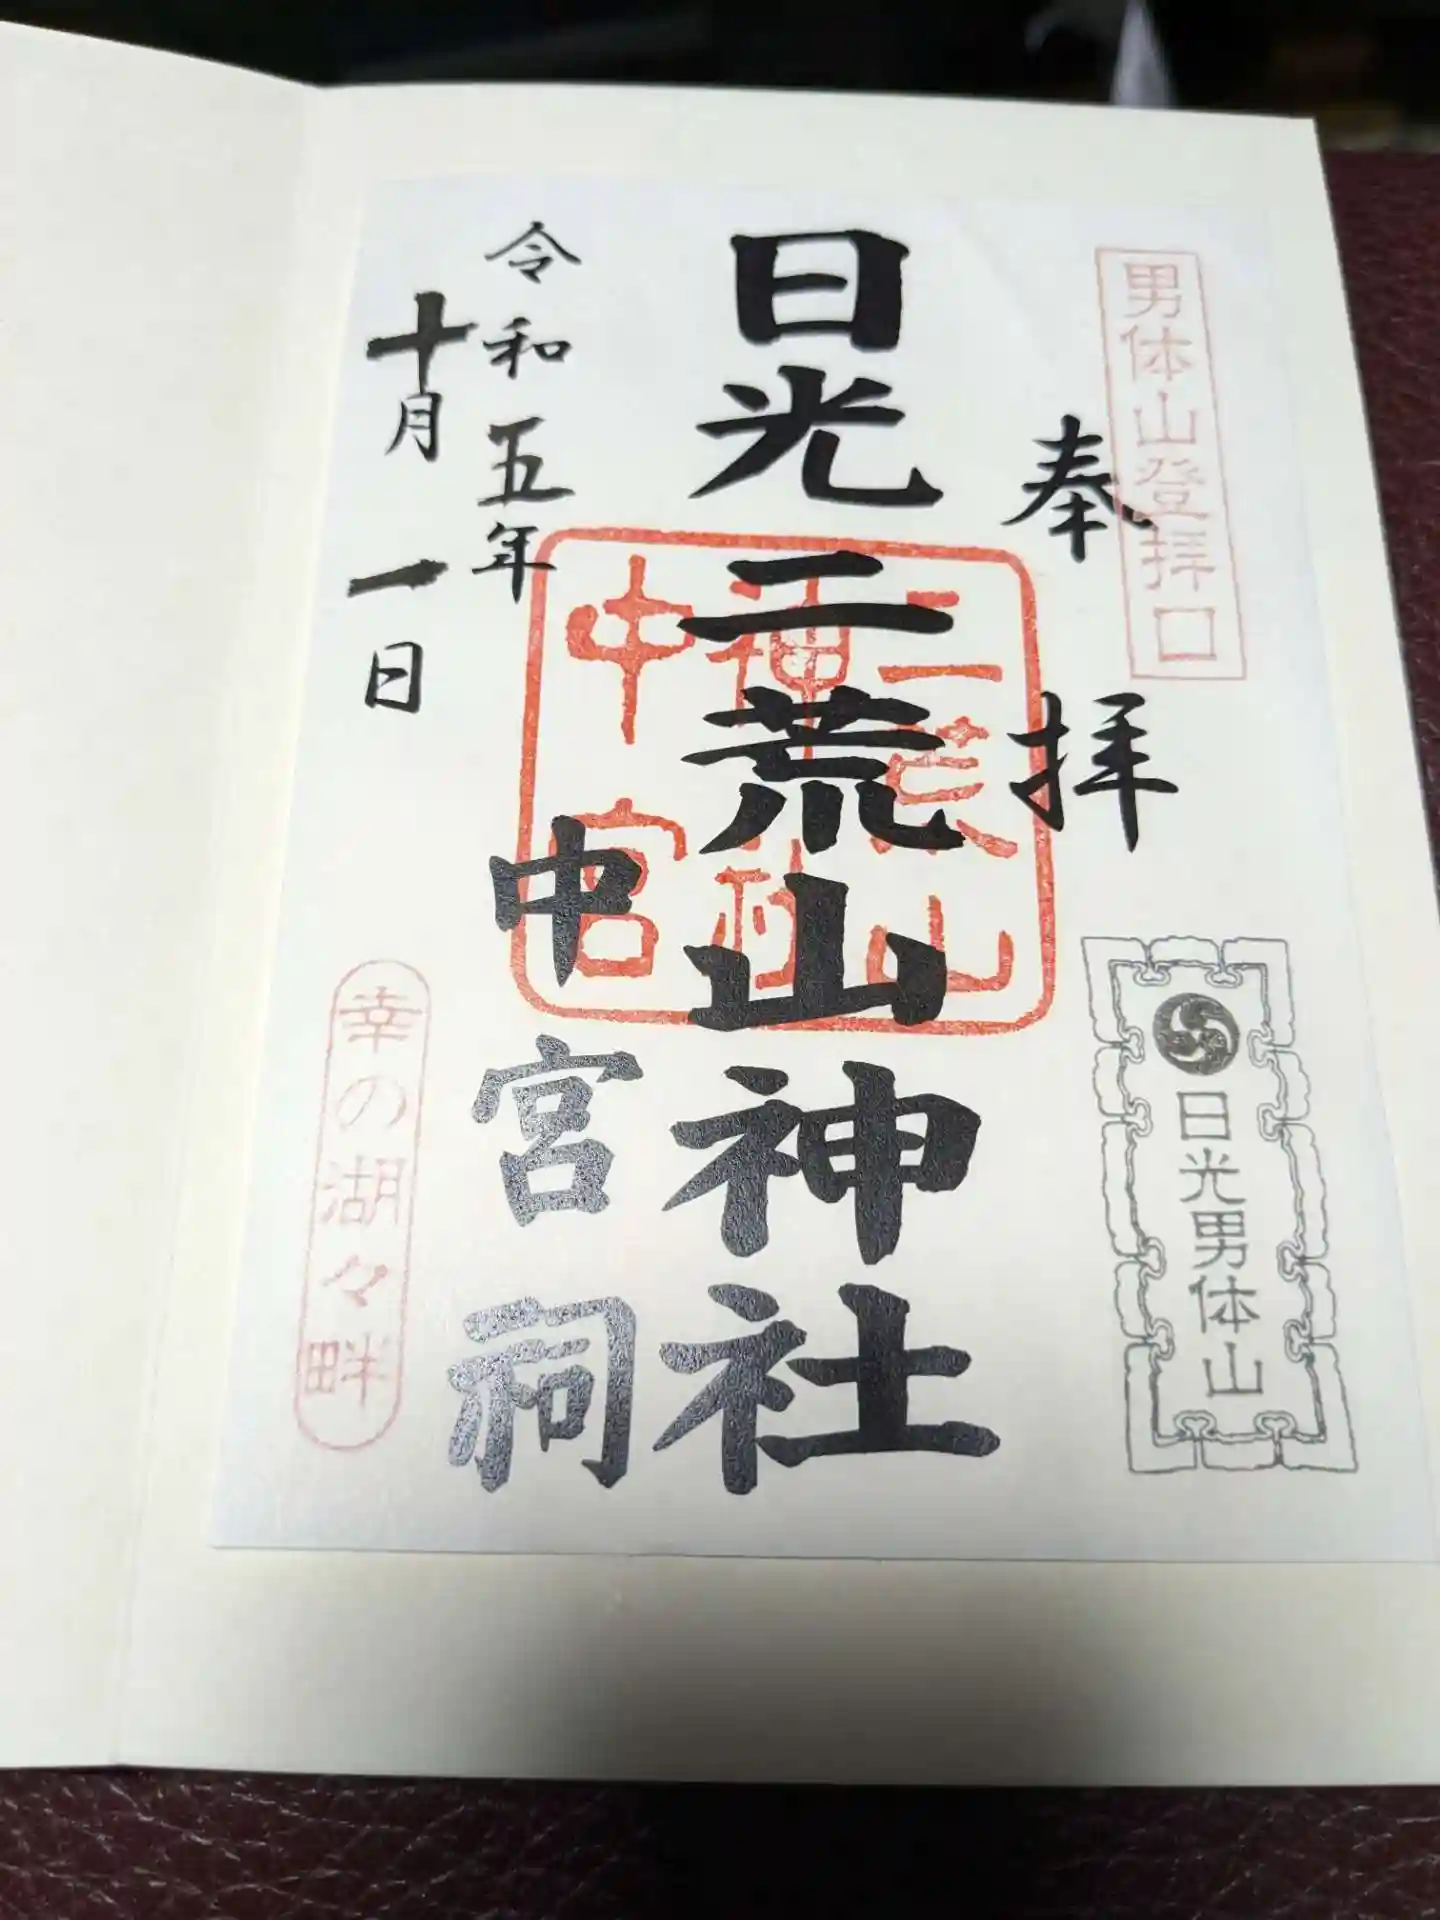 男体山登拝口
奉拝
日光男体山
日光二荒山神社
中宮祠
二荒山
神社
中宮
令和五年
十月一日
幸の湖々畔